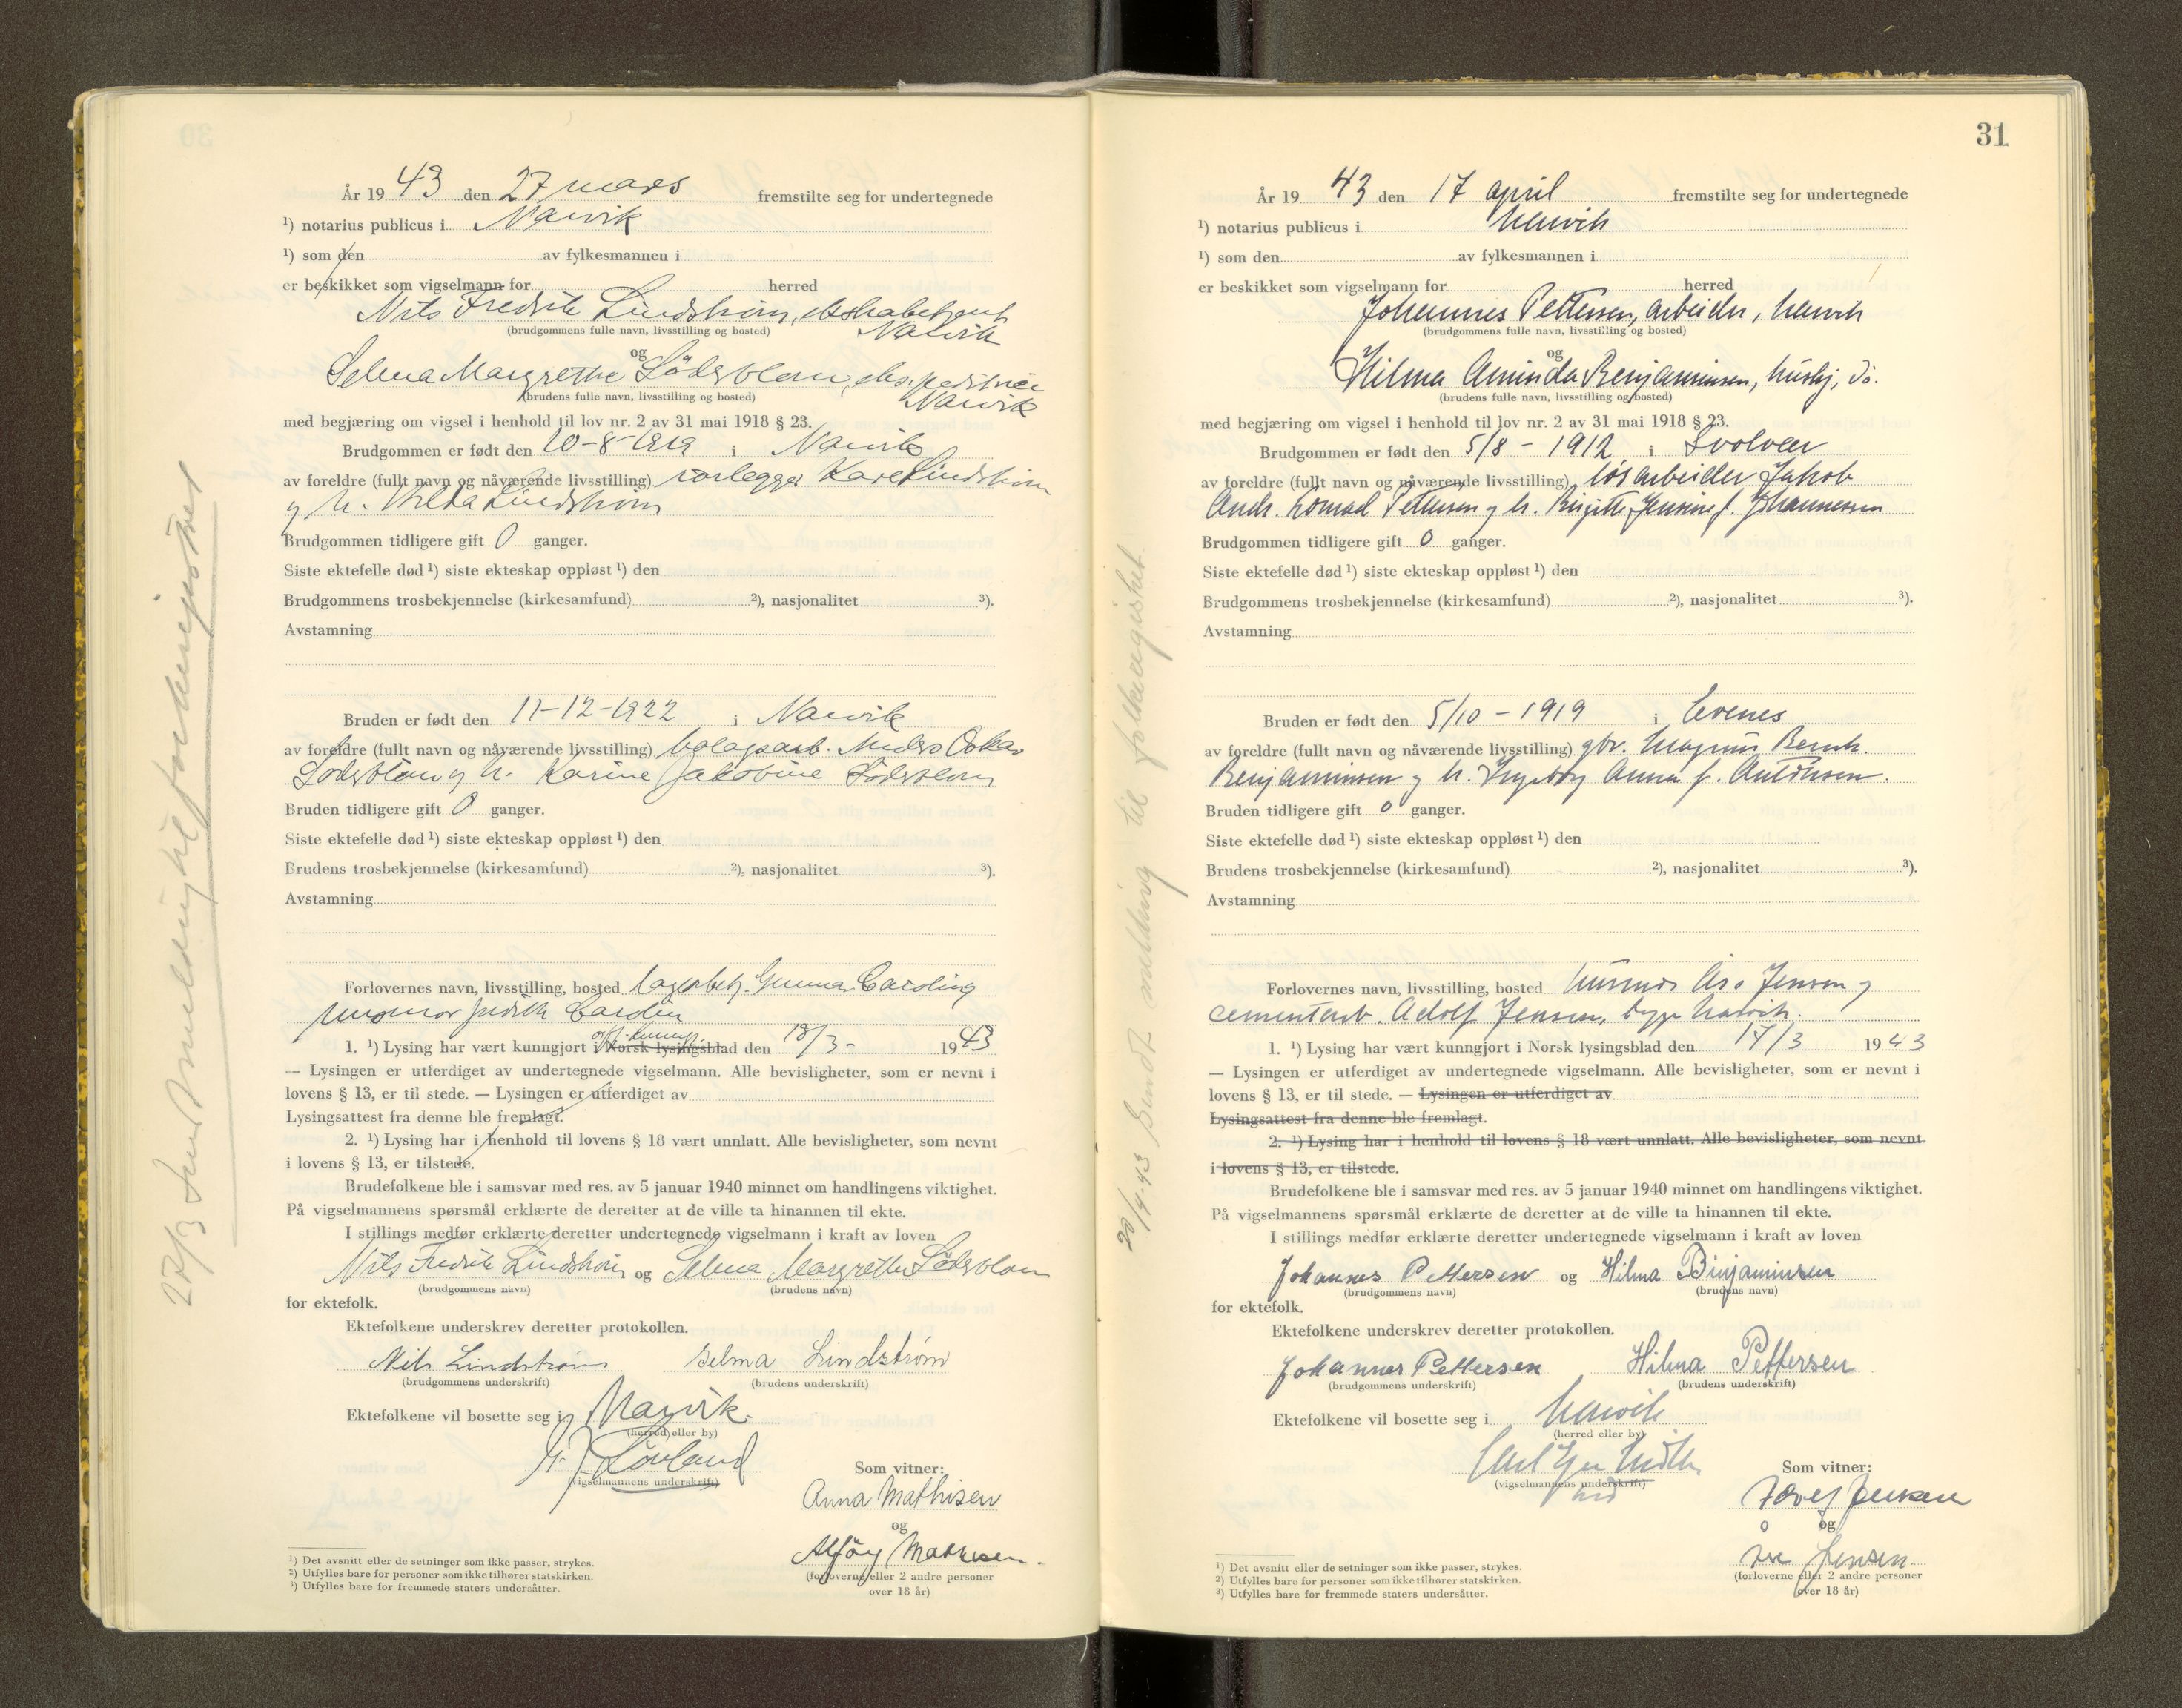 År 19 43 den 27 mars fremstilte seg for undertegnede
¹) notarius publicus i Narvik
¹) som den av fylkesmannen i
er beskikket som vigselmann for herred
Nils Fredrik Lindstrøm,
(brudgommens fulle navn, livsstilling og bosted) Narvik
og
Selma Margrethe Söderblom, ekspeditrice
(brudens fulle navn, livsstilling og bosted) Narvik
med begjæring om vigsel i henhold til lov nr. 2 av 31 mai 1918 § 23.
Brudgommen er født den 10-8-1919 i Narvik
av foreldre (fullt navn og nåværende livsstilling) rørlegger Lindstrøm
og h. Lindstrøm
Brudgommen tidligere gift 0 ganger.
Siste ektefelle død ¹) siste ekteskap oppløst ¹) den
Brudgommens trosbekjennelse (kirkesamfund) ²), nasjonalitet ³).
Avstamning
Bruden er født den 11-12-1922 i Narvik
av foreldre (fullt navn og nåværende livsstilling) Anders Oskar
Söderblom og h. Karine Jakobine Söderblom
Bruden tidligere gift 0 ganger.
Siste ektefelle død ¹) siste ekteskap oppløst ¹) den
Brudens trosbekjennelse (kirkesamfund) ²), nasjonalitet ³).
Avstamning
Forlovernes navn, livsstilling, bosted Gunnar
1. ¹) Lysing har vært kunngjort i Norsk lysingsblad den 18/3- 1943
— Lysingen er utferdiget av undertegnede vigselmann. Alle bevisligheter, som er nevnt i
lovens § 13, er til stede. — Lysingen er utferdiget av
Lysingsattest fra denne ble fremlagt.
2. ¹) Lysing har i henhold til lovens § 18 vært unnlatt. Alle bevisligheter, som nevnt
i lovens § 13, er tilstede.
Brudefolkene ble i samsvar med res. av 5 januar 1940 minnet om handlingens viktighet.
På vigselmannens spørsmål erklærte de deretter at de ville ta hinannen til ekte.
I stillings medfør erklærte deretter undertegnede vigselmann i kraft av loven
Nils Fredrik Lindstrøm og Selma Margrethe Söderblom
(brudgommens navn) (brudens navn)
for ektefolk.
Ektefolkene underskrev deretter protokollen.
Nils Lindstrøm Selma Lindstrøm
(brudgommens underskrift) (brudens underskrift)
Ektefolkene vil bosette seg i Narvik.
(herred eller by)
Løvland
(vigselmannens underskrift)
Som vitner:
Anna Mathisen
og
Mathisen.
(forloverne eller 2 andre personer
over 18 år)
¹) Det avsnitt eller de setninger som ikke passer, strykes.
²) Utfylles bare for personer som ikke tilhører statskirken.
³) Utfylles bare for fremmede staters undersåtter.
27/3 Sendt melding til folkeregistret
31
År 19 43 den 17 april fremstilte seg for undertegnede
¹) notarius publicus i Narvik
¹) som den av fylkesmannen i
er beskikket som vigselmann for herred
Johannes Pettersen, arbeider, Narvik
(brudgommens fulle navn, livsstilling og bosted)
og
Hilma Aminda Benjaminsen, hushj, do.
(brudens fulle navn, livsstilling og bosted)
med begjæring om vigsel i henhold til lov nr. 2 av 31 mai 1918 § 23.
Brudgommen er født den 5/8 - 1912 i Svolvær
av foreldre (fullt navn og nåværende livsstilling) løsarbeider Jakob
Andr. Konrad Pettersen og h. Birgitte Jensine f. Johannessen
Brudgommen tidligere gift 0 ganger.
Siste ektefelle død ¹) siste ekteskap oppløst ¹) den
Brudgommens trosbekjennelse (kirkesamfund) ²), nasjonalitet ³).
Avstamning
Bruden er født den 5/10 - 1919 i Evenes
av foreldre (fullt navn og nåværende livsstilling) gbr. Magnus Bernh.
Benjaminsen og h. Ingeborg Anna f. Antonsen.
Bruden tidligere gift 0 ganger.
Siste ektefelle død ¹) siste ekteskap oppløst ¹) den
Brudens trosbekjennelse (kirkesamfund) ²), nasjonalitet ³).
Avstamning
Forlovernes navn, livsstilling, bosted husmor Åse Jensen og
cementarb. Adolf Jensen, begge Narvik.
1. ¹) Lysing har vært kunngjort i Norsk lysingsblad den 17/3 1943
— Lysingen er utferdiget av undertegnede vigselmann. Alle bevisligheter, som er nevnt i
lovens § 13, er til stede. — Lysingen er utferdiget av
Lysingsattest fra denne ble fremlagt.
2. ¹) Lysing har i henhold til lovens § 18 vært unnlatt. Alle bevisligheter, som nevnt
i lovens § 13, er tilstede.
Brudefolkene ble i samsvar med res. av 5 januar 1940 minnet om handlingens viktighet.
På vigselmannens spørsmål erklærte de deretter at de ville ta hinannen til ekte.
I stillings medfør erklærte deretter undertegnede vigselmann i kraft av loven
Johannes Pettersen og Hilma Binjaminsen
(brudgommens navn) (brudens navn)
for ektefolk.
Ektefolkene underskrev deretter protokollen.
Johannes Pettersen Hilma Pettersen
(brudgommens underskrift) (brudens underskrift)
Ektefolkene vil bosette seg i Narvik
(herred eller by)
(vigselmannens underskrift)
Som vitner:
Adolf Jensen
og
Åse Jensen
(forloverne eller 2 andre personer
over 18 år)
¹) Det avsnitt eller de setninger som ikke passer, strykes.
²) Utfylles bare for personer som ikke tilhører statskirken.
³) Utfylles bare for fremmede staters undersåtter.
20/4-43 Sendt melding til folkeregistret